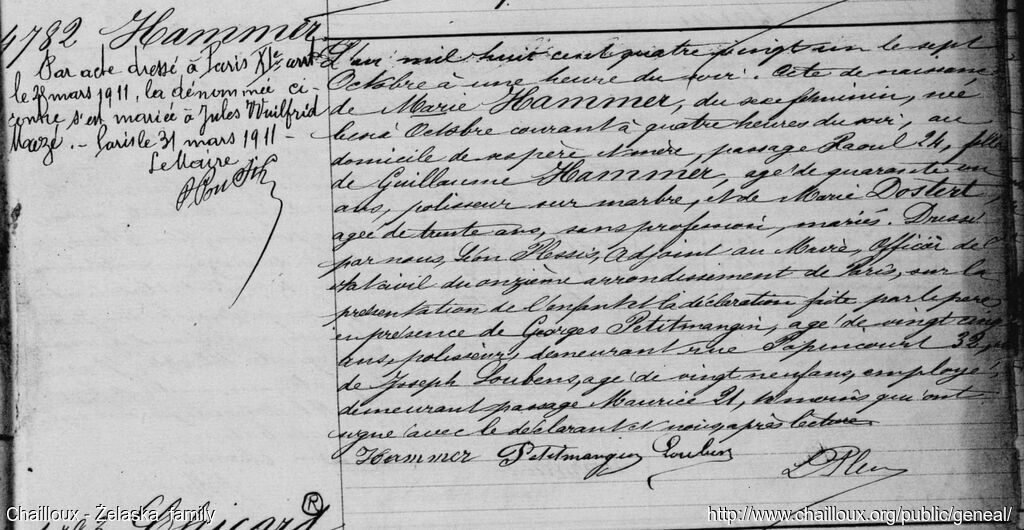 4782 Hammer
Par acte dressé à Paris XIe arrt
le 28 mars 1911, la dénommée ci-
contre s'est mariée à Jules Wuilfrid
Mazé. - Paris le 31 mars 1911 -
Le Maire
L'an mil huit cent quatre vingt un le sept
Octobre à une heure du soir. Acte de naissance
de Marie Hammer, du sexe féminin, née
le six Octobre courant à quatre heures du soir, au
domicile de ses père et mère, passage Raoul 24, fille
de Guillaume Hammer, agé de quarante un
ans, polisseur sur marbre, et de Marie Dostert,
agée de trente ans, sans profession, mariés. Dressé
par nous, Léon Plessis, Adjoint au Maire, Officier de l'
Etat civil du onzième arrondissement de Paris, sur la
présentation de l'enfant et la déclaration faite par le père
en présence de Georges Petitmangin, agé de vingt cinq
ans, polisseur, demeurant rue Popincourt 32, et
de Joseph Loubens, agé de vingt neuf ans, employé,
demeurant passage Maurice 21, témoins qui ont
signé avec le déclarant et nous après lecture
Hammer Petitmangin Loubens
Chailloux - Želaska family
R
http://www.chailloux.org/public/geneal/